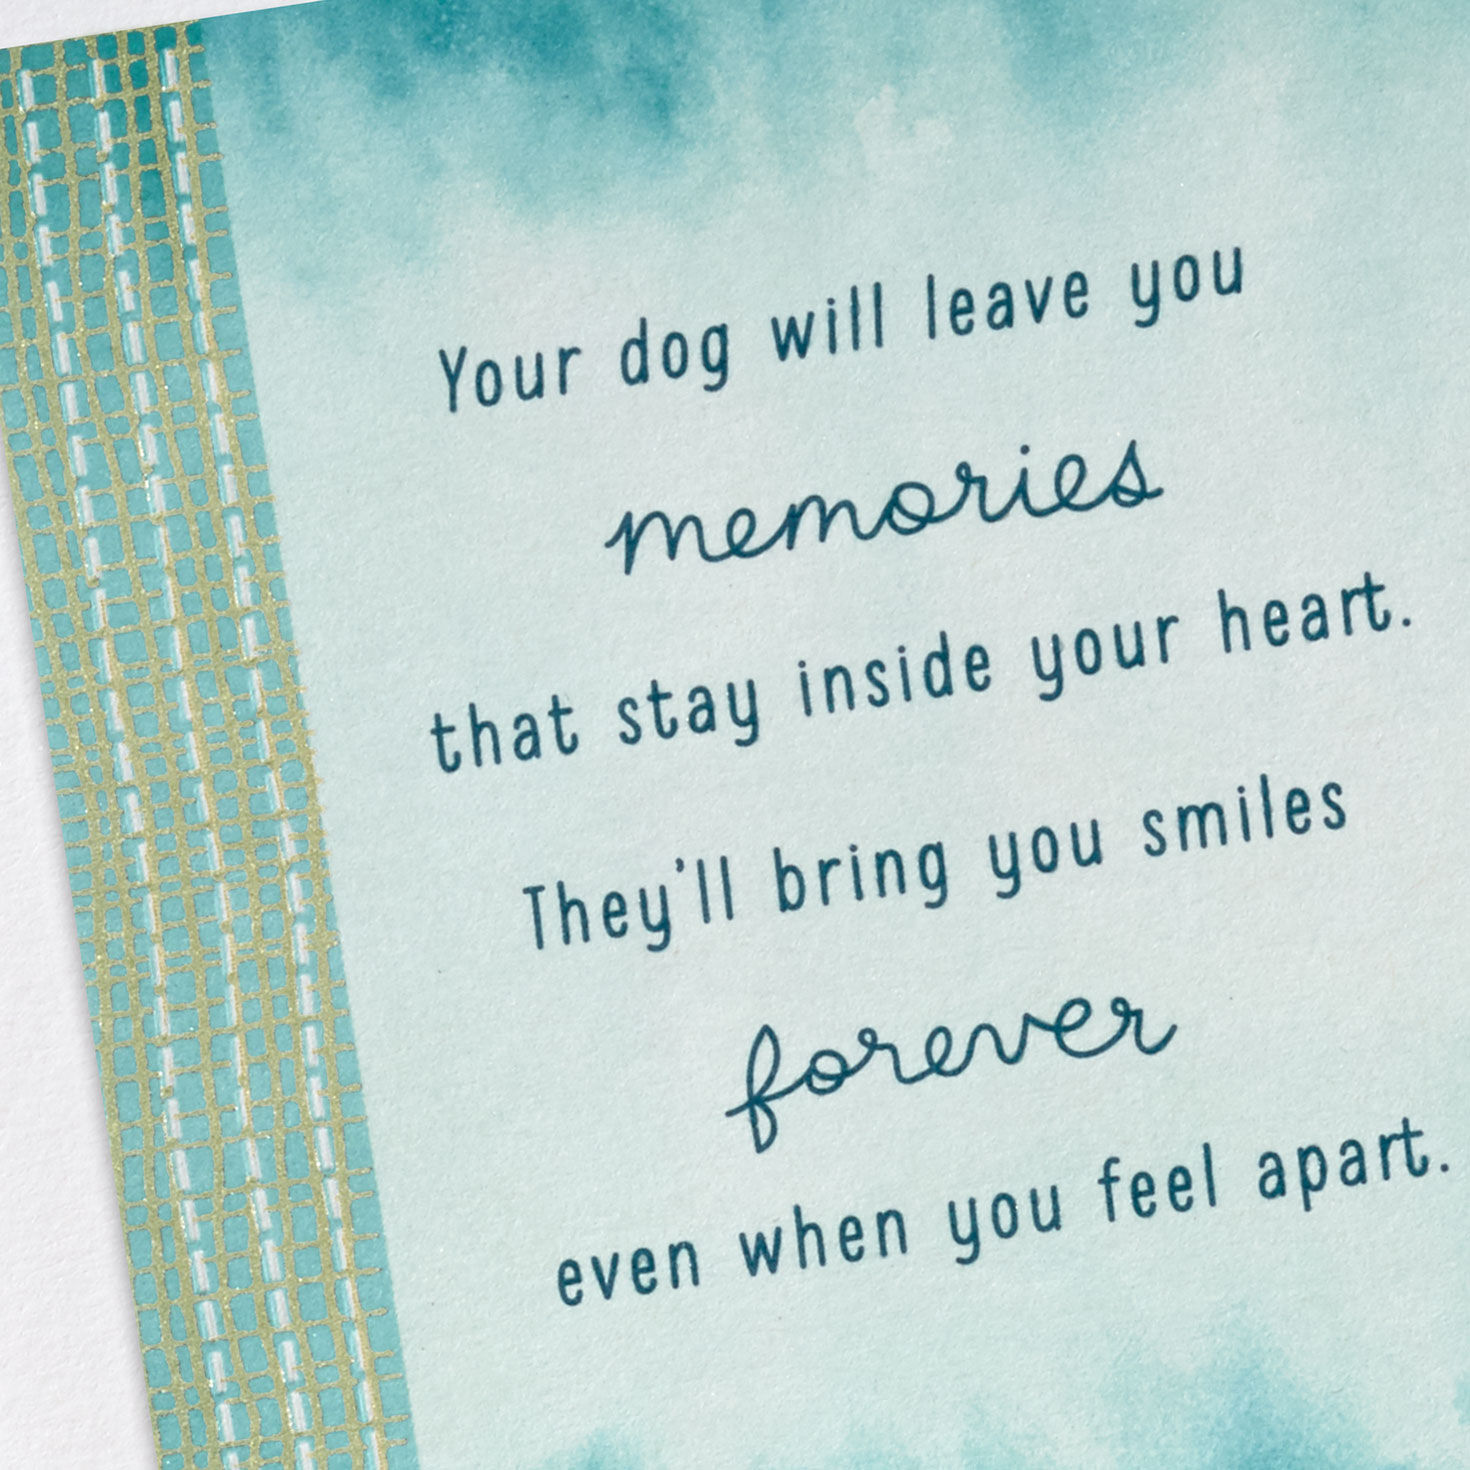 Your dog will leave you
memories
that stay inside your heart.
They'll bring you smiles
forever
even when you feel apart.